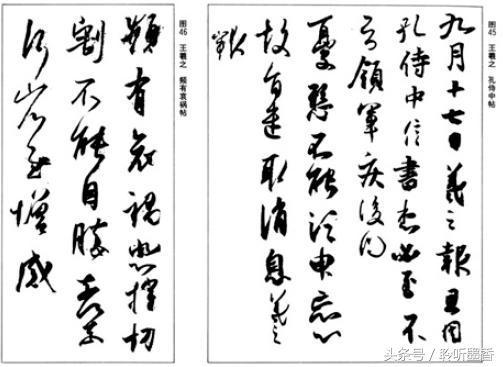 图45 王羲之 孔侍中帖
九月十七日羲之報且因
孔侍中信書想必至不
知領軍疾後問
憂懸不能須臾忘心
故旨遣取消息羲之
報
图46 王羲之 频有哀祸帖
頻有哀禍悲摧切
割不能自勝奈何奈
何省慰增感
头条号/聆听墨香